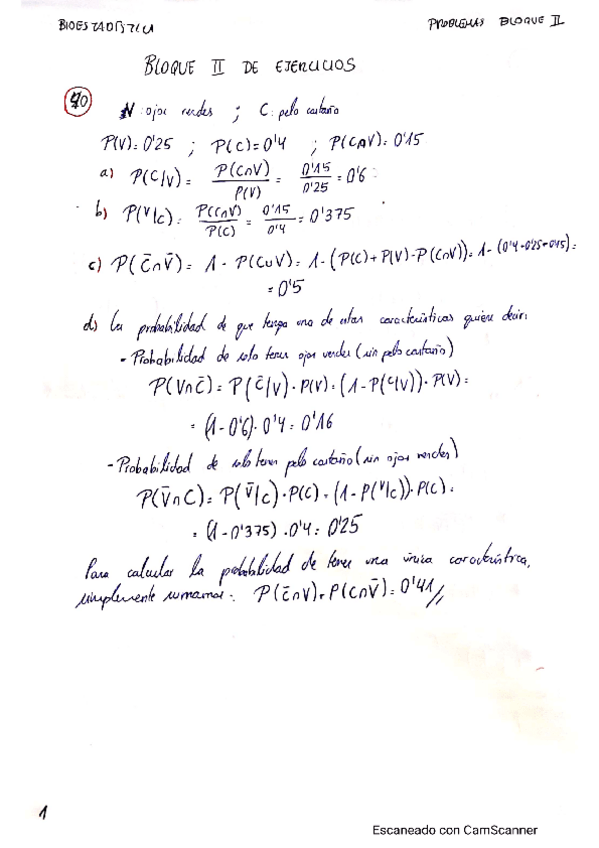 BIOESTADÍSTICA PROBLEMAS BLOQUE II
BLOQUE II DE EJERCICIOS
40 V: ojos verdes ; C: pelo castaño
P(V)= 0'25 ; P(C)= 0'4 ; P(C∩V)= 0'15
a) P(C/V)= P(C∩V)/P(V) = 0'15/0'25 = 0'6
b) P(V/C)= P(C∩V)/P(C) = 0'15/0'4 = 0'375
c) P(C̄∩V̄)= 1 - P(C∪V)= 1-(P(C)+P(V)-P(C∩V))= 1-(0'4+0'25+0'15)=
= 0'5
d) La probabilidad de que tenga una de estas características quiere decir:
- Probabilidad de solo tener ojos verdes (sin pelo castaño)
P(V∩C̄)= P(C̄/V)·P(V)= (1-P(C/V))·P(V)=
= (1-0'6)·0'4= 0'16
- Probabilidad de solo tener pelo castaño (sin ojos verdes)
P(V̄∩C)= P(V̄/C)·P(C)= (1-P(V/C))·P(C)=
= (1-0'375)·0'4= 0'25
Para calcular la probabilidad de tener una única característica,
simplemente sumamos: P(C̄∩V)+P(C∩V̄)= 0'41//
1
Escaneado con CamScanner